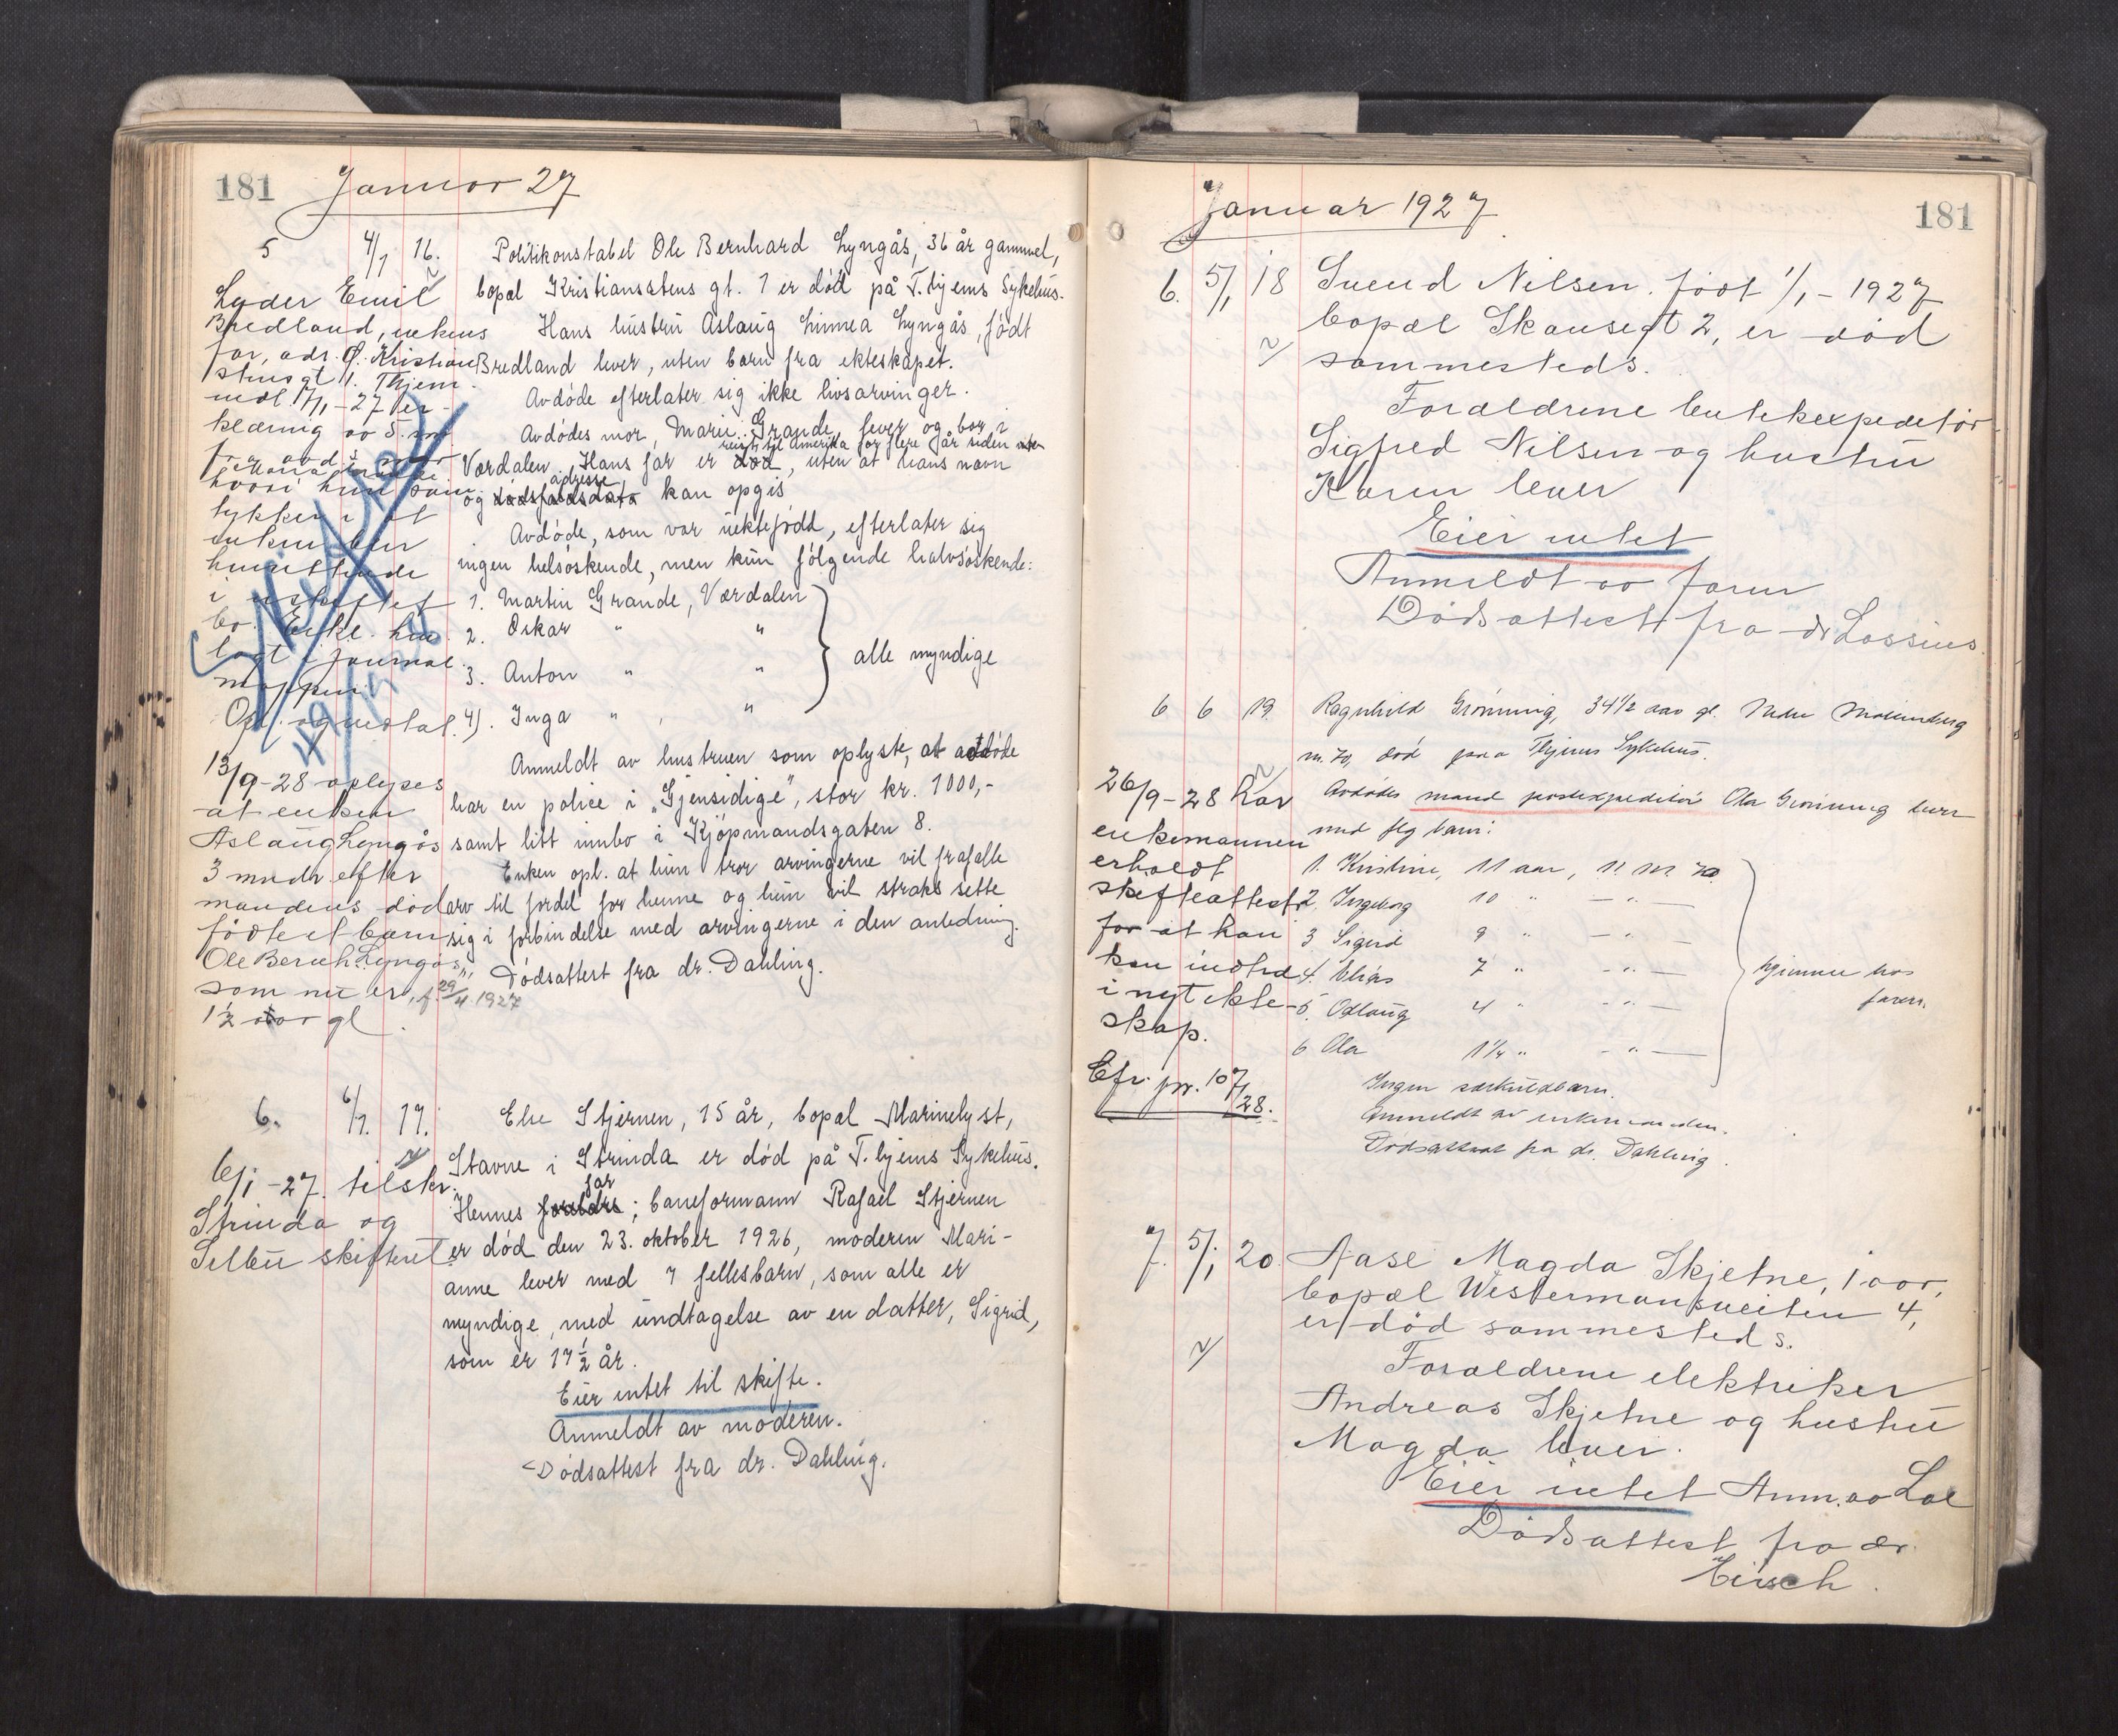 181 Januar 27
5 4/1 16. Politikonstabel Ole Bernhard Lyngås, 36 år gammel,
bopæl Kristianstens gt. 1 er död på T.hjems Sykehus.
Hans hustru Aslaug Linnea Lyngås, född
Bredland lever, uten barn fra ekteskapet.
Avdöde efterlater sig ikke livsarvinger.
Avdödes mor, Marie Grande, lever og bor i
reist til Amerika for flere år siden uten
Værdalen. Hans far er död, uten at hans navn
adresse
og dödsfaldsdato kan opgis
Avdöde, som var uektefödt, efterlater sig
ingen helsöskende, men kun fölgende halvsöskende:
1. Martin Grande, Værdalen
2. Oskar " "
3. Anton " "
4). Inga " , "
alle myndige
Anmeldt av hustruen som oplyste, at avdöde
har en police i "Gjensidige", stor kr. 1000,-
samt litt innbo i Kjöpmandsgaten 8.
Enken opl. at hun tror arvingerne vil frafalle
arv til fordel for henne og hun vil straks sette
sig i forbindelse med arvingerne i den anledning.
Dödsattest fra dr. Dahling.
Lyder Emil
Bredland, enkens
far, adr. Ö. Kristian
stensgt 1. Thjem.
medl. 7/1-27 er-
klæring av 5. ds.
fra avd.s mor
Marie Grande
hvori hun sam
tykker i at
enken blir
hensittende
i uskiftet
bo. Erkl. hen
lagt i journal
mappen.
Opl. og vedtat.
19/1-27
13/9-28 oplyses
at enken
Aslaug Lyngås
3 mndr efter
mandens död
födte et barn
Ole Bernh. Lyngås,
som nu er, f. 29/4 1927
1½ aar gl.
6. 6/1. 17. Else Stjernen, 15 år, bopæl Marinelyst,
Stavne i Strinda er död på T.hjems Sykehus.
far
Hennes foreldre; baneformann Rafael Stjernen
er död den 23. oktober 1926, moderen Mari-
anne lever med 7 fellesbarn, som alle er
myndige, med undtagelse av en datter, Sigrid,
som er 17½ år.
Eier intet til skifte.
Anmeldt av moderen.
Dödsattest fra dr. Dahling.
6/1-27. tilskr.
Strinda og
Selbu skifteret
Januar 1927 181
6. 5/1 18 Svend Nilsen. födt 1/1-1927
bopæl Skansegt 2, er död
sammesteds.
Forældrene butikkexpeditör
Sigfred Nilsen og hustru
Karen lever
Eier intet
Anmeldt av faren
Dödsattest fra dr Lossius.
6 6 19. Ragnhild Grönning, 34½ aar gl. Nedre Möllenberg
nr. 70, död paa Thjems Sykehus.
Avdödes mand postexpeditör Ola Grönning lever
med flg barn:
1. Kristine, 11 aar, N. M. 70.
2. Ingeborg 10 " — " —
3 Sigrid 9 " — " —
4. Elias 7 " — " —
5. Odlaug 4 " — " —
6 Ola 1¼ " — " —
hjemme hos
faren.
Ingen særkuldbarn.
Anmeldt av enkemanden.
Dödsattest fra dr. Dahling.
26/9-28 har
enkemannen
erholdt
skifteattest
for at han
kan indtræ
i nyt ekte-
skap.
Cfr. jnr. 107/28.
7. 5/1 20. Aase Magda Skjetne, 1 aar,
bopæl Westermannsveiten 4,
er död sammesteds.
Forældrene elektriker
Andreas Skjetne og hustru
Magda lever.
Eier intet Anm. av Lae
Dödsattest fra dr.
Kirsch.